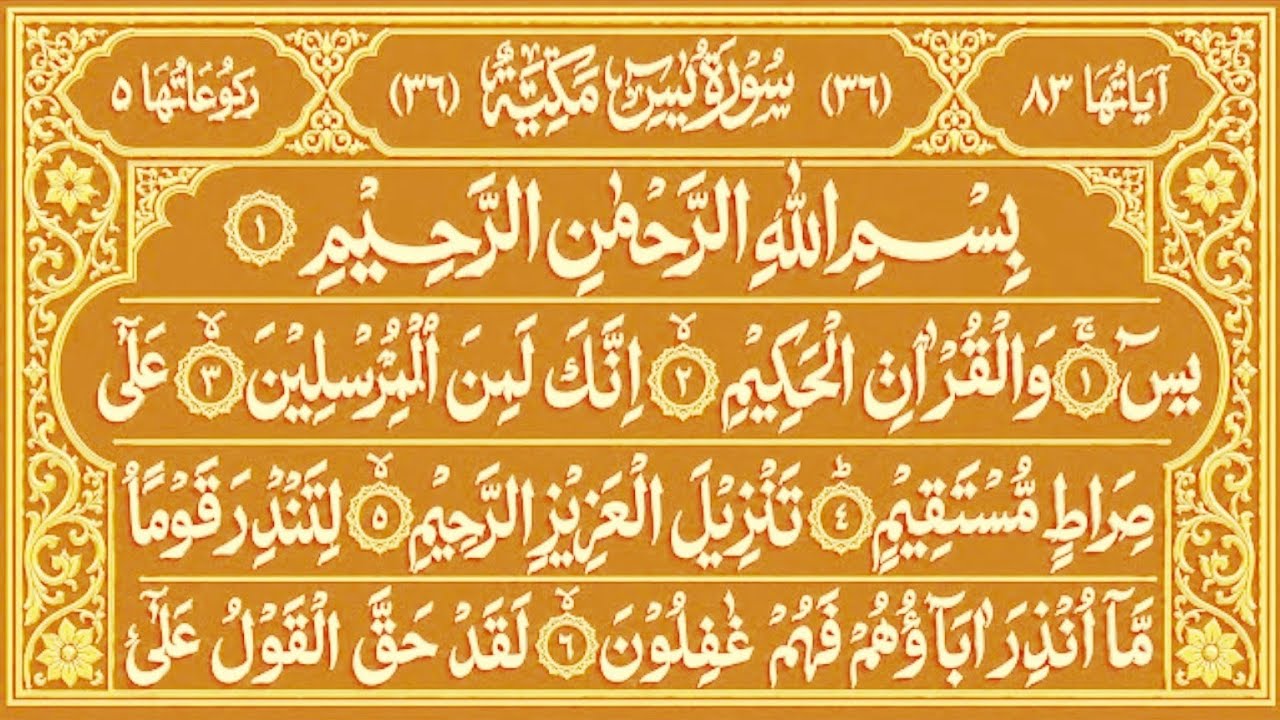 اٰيَاتُهَا ٨٣ (٣٦) سُوْرَةُ يٰسٓ مَكِّيَّةٌ (٣٦) رَكُوْعَاتُهَا ٥
بِسْمِ اللّٰهِ الرَّحْمٰنِ الرَّحِيْمِ ١
يٰسٓ ۚ ١ وَالْقُرْاٰنِ الْحَكِيْمِ ۙ ٢ اِنَّكَ لَمِنَ الْمُرْسَلِيْنَ ۙ ٣ عَلٰى
صِرَاطٍ مُّسْتَقِيْمٍ ؕ ٤ تَنْزِيْلَ الْعَزِيْزِ الرَّحِيْمِ ۙ ٥ لِتُنْذِرَ قَوْمًا
مَّاۤ اُنْذِرَ اٰبَآؤُهُمْ فَهُمْ غٰفِلُوْنَ ۙ ٦ لَقَدْ حَقَّ الْقَوْلُ عَلٰۤى